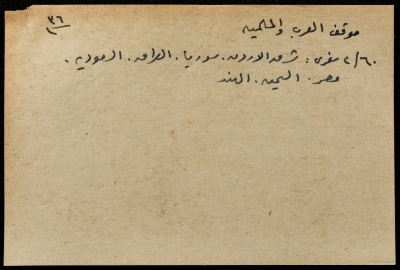 ٣٦
موقف العرب والمسلمين
٢/٦٠ سفرى : شرق الاردن . سوريا . العراق . السعوديه .
مصر . اليمن . الهند